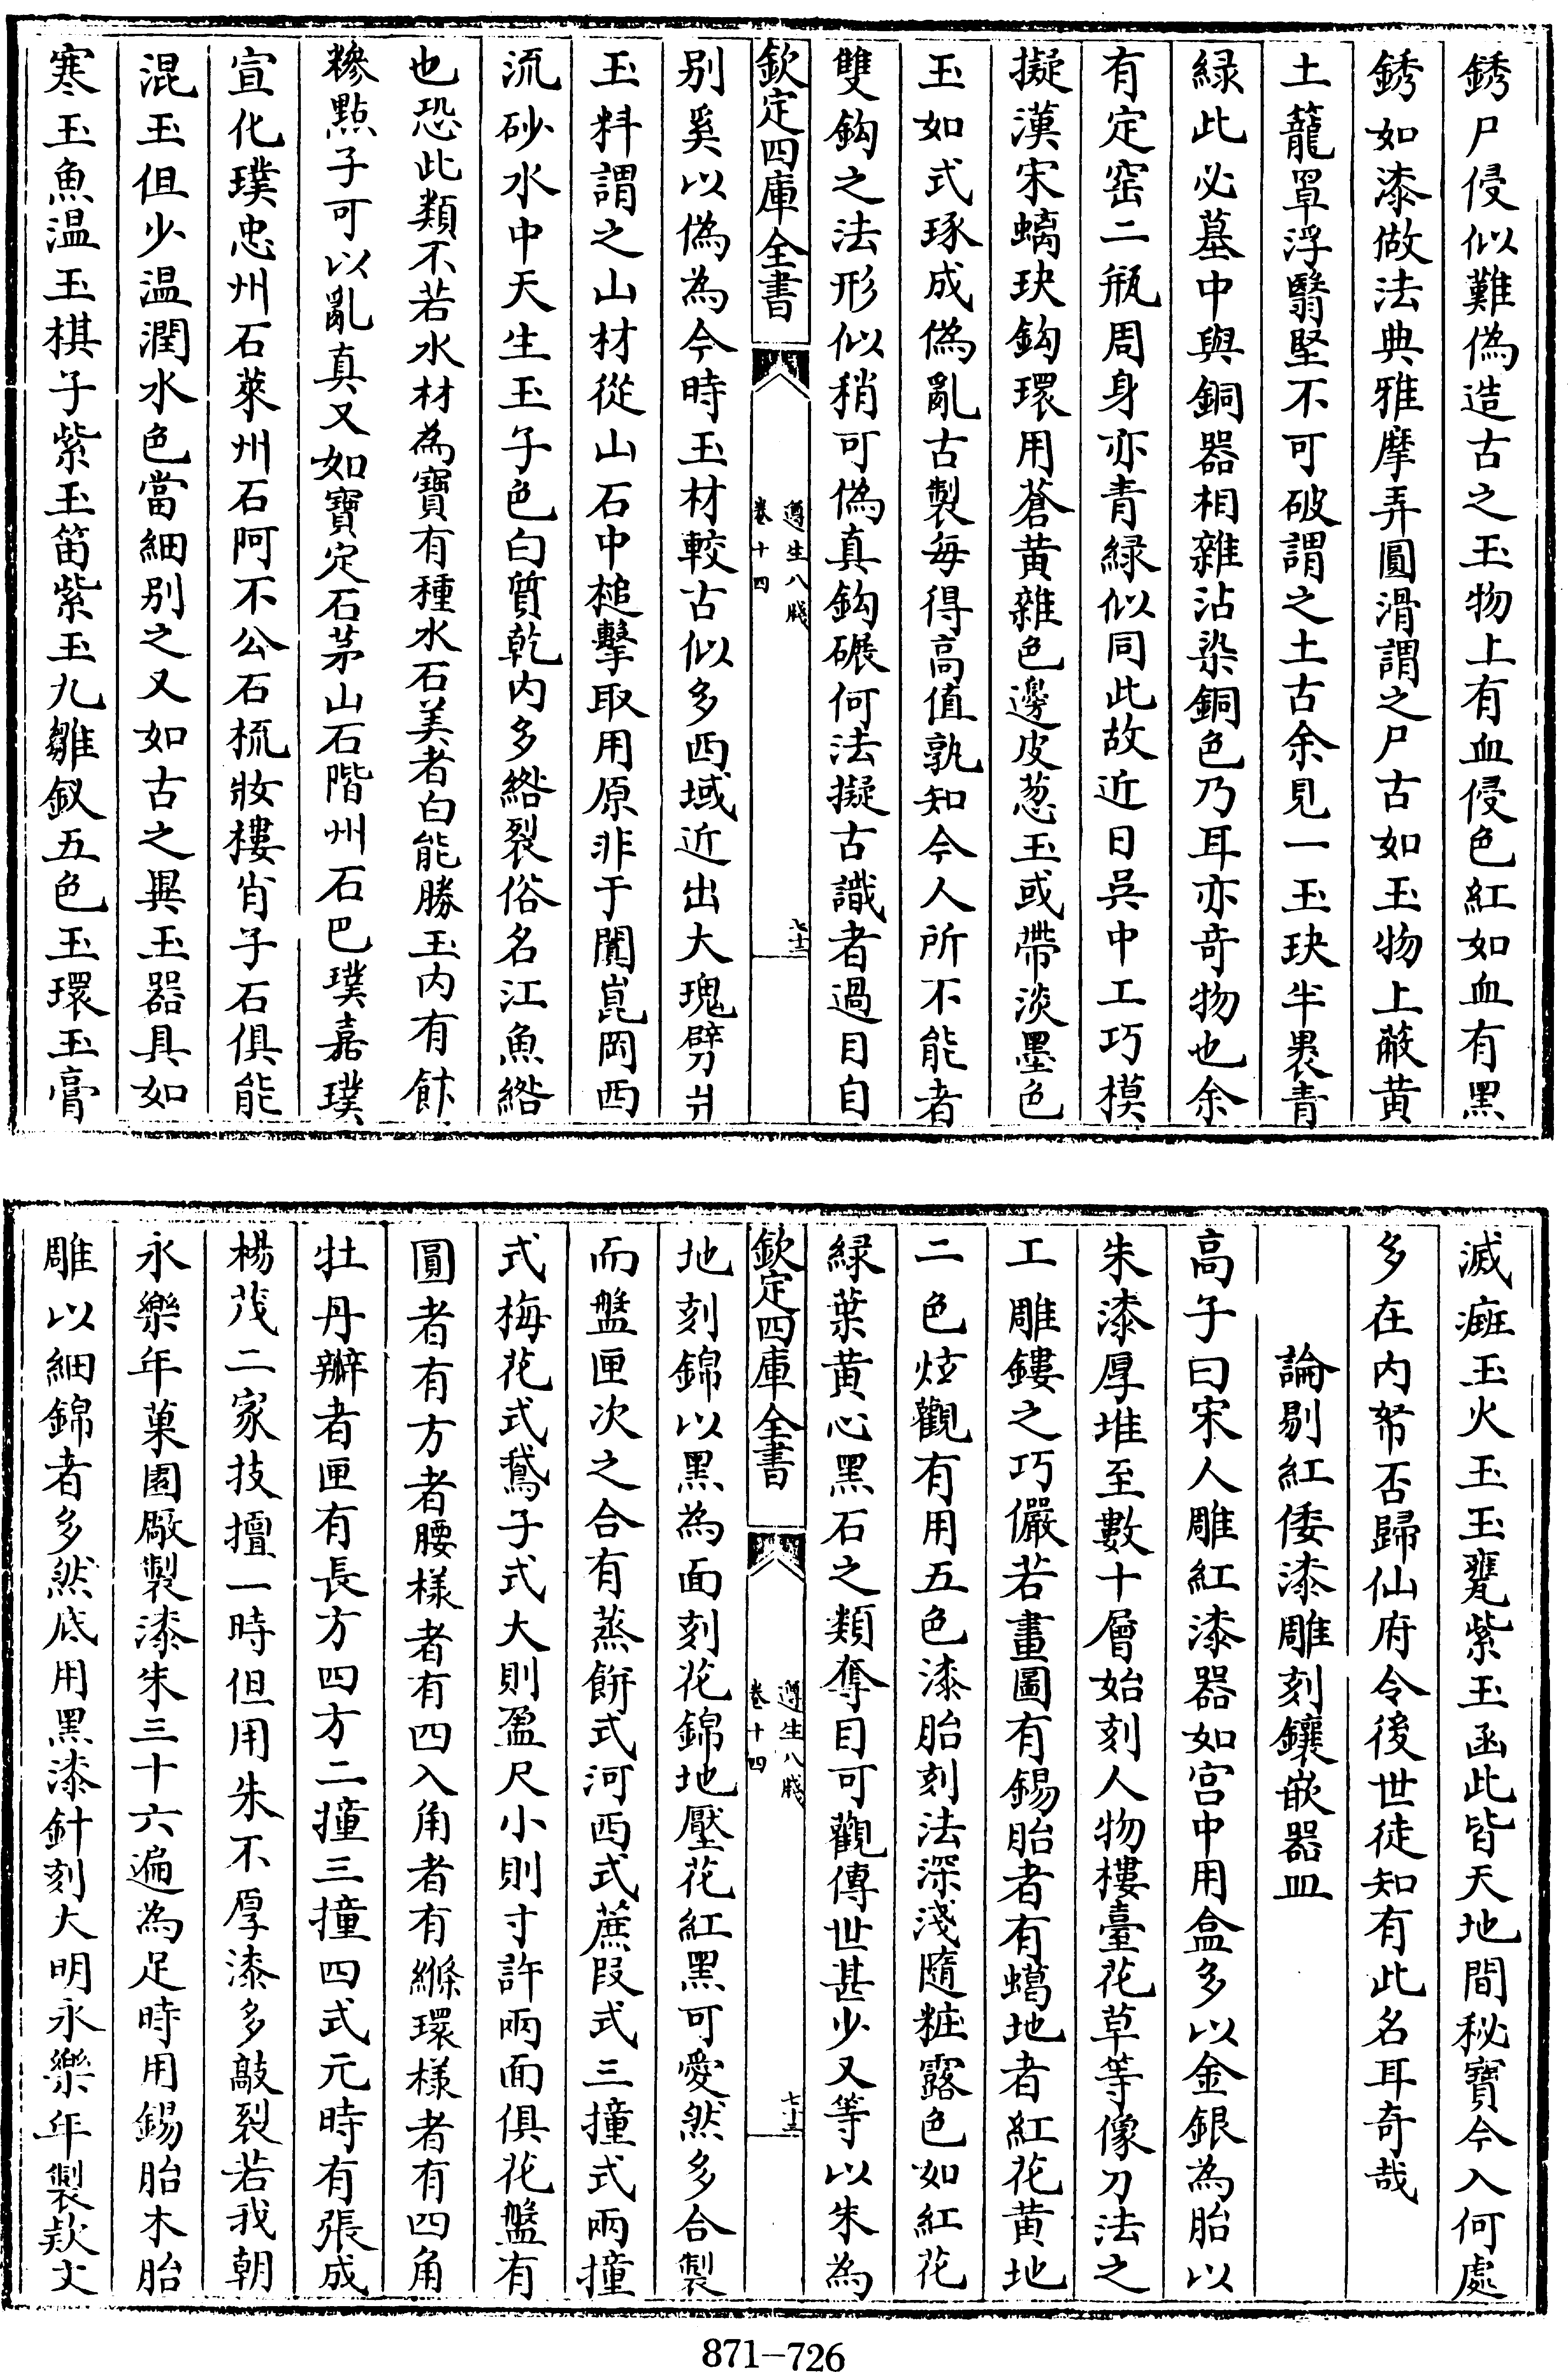 銹尸侵似難偽造古之玉物上有血侵色紅如血有黑
銹如漆做法典雅摩弄圓滑謂之尸古如玉物上蔽黄
土籠罩浮翳堅不可破謂之土古余見一玉玦半褁青
緑此必墓中與銅器相雜沾染銅色乃耳亦竒物也余
有定窑二瓶周身亦青緑似同此故近日吳中工巧模
擬漢宋螭玦鈎環用蒼黄雜色邊皮葱玉或帶淡墨色
玉如式琢成偽亂古製每得高值孰知今人所不能者
雙鈎之法形似稍可偽真鈎碾何法擬古識者過目自
欽定四庫全書
遵生八牋
卷十四
七十二
别奚以偽為今時玉材較古似多西域近出大塊劈爿
玉料謂之山材從山石中槌擊取用原非于闐崑岡西
流砂水中天生玉子色白質乾内多綹裂俗名江魚綹
也恐此類不若水材為寶有種水石美者白能勝玉内有飰
糝點子可以亂真又如寶定石茅山石階州石巴璞嘉璞
宣化璞忠州石萊州石阿不公石梳妝樓肖子石俱能
混玉但少温潤水色當細别之又如古之異玉器具如
寒玉魚温玉棋子紫玉笛紫玉九雛釵五色玉環玉膏
滅瘢玉火玉玉甕紫玉函此皆天地間秘寶今入何處
多在内帑否歸仙府令後世徒知有此名耳奇哉
論剔紅倭漆雕刻鑲嵌器皿
高子曰宋人雕紅漆器如宫中用盒多以金銀為胎以
朱漆厚堆至數十層始刻人物樓臺花草等像刀法之
工雕鏤之巧儼若畫圖有錫胎者有蠟地者紅花黄地
二色炫觀有用五色漆胎刻法深淺隨粧露色如紅花
緑葉黄心黑石之類奪目可觀傳世甚少又等以朱為
欽定四庫全書
遵生八牋
卷十四
七十三
地刻錦以黑為面刻花錦地壓花紅黑可愛然多合製
而盤匣次之合有蒸餅式河西式蔗段式三撞式兩撞
式梅花式鵞子式大則盈尺小則寸許兩面俱花盤有
圓者有方者腰様者有四入角者有縧環様者有四角
牡丹瓣者匣有長方四方二撞三撞四式元時有張成
楊茂二家技擅一時但用朱不厚漆多敲裂若我朝
永樂年菓園厰製漆朱三十六遍為足時用錫胎木胎
雕以細錦者多然底用黑漆針刻大明永樂年製欵文
871-726